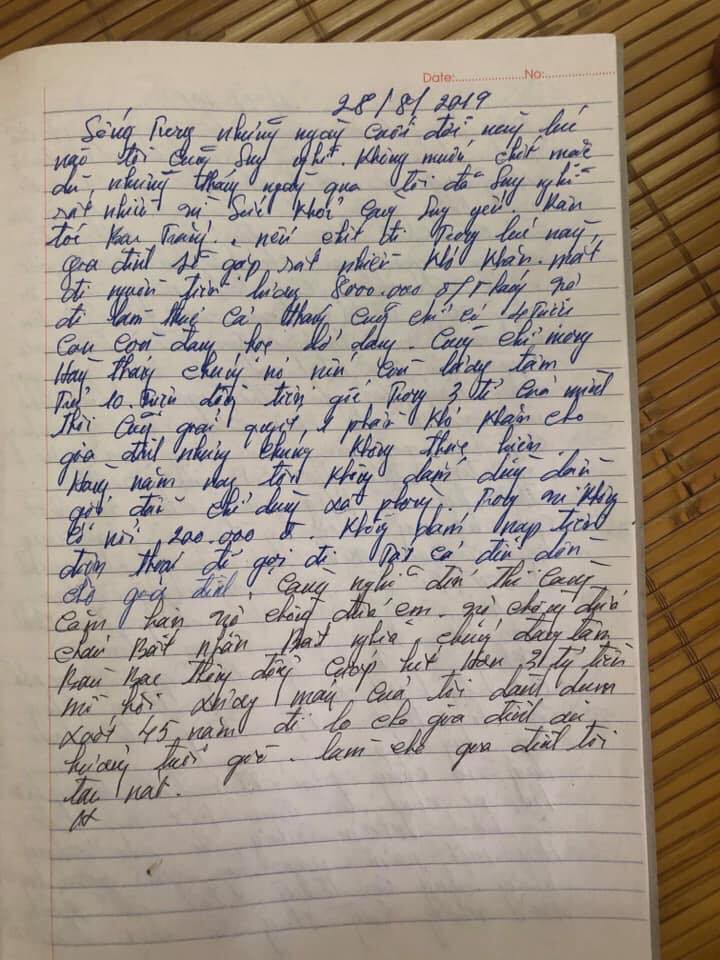 Date:.....................No:.....................
28/8/2019
Sống Trong những ngày cuối đời này lúc
nào tôi cũng suy nghĩ. Không muốn chết mặc
dù những tháng ngày qua tôi đã suy nghĩ
rất nhiều vì sức khỏe càng suy yếu. Răn
tóc Bạc Trắng. nếu chết đi Trong lúc này,
gia đình sẽ gặp rất nhiều khó khăn. mất
đi nguồn tiền lương 8000.000 đ/Tháng vợ
đi làm thuê cả tháng cũng chỉ có 4Triệu
con còn đang học dở dang. Cũng chỉ mong
Hàng tháng chúng nó nếu còn lương tâm
Trả 10 Triệu đồng tiền gốc Trong 3 tỉ của mình
Thôi cũng giải quyết 1 phần khó khăn cho
gia đình nhưng chúng không thực hiện.
Hàng năm nay tôi không dám dùng dầu
gội đầu chỉ dùng xà phòng. Trong ví không
có nổi 200.000 đ. Không dám nạp tiền
điện thoại để gọi đi Tất cả điều dồn
cho gia đình. Càng nghĩ đến thì càng
căm hận vợ chồng đứa em. vợ chồng đứa
cháu Bất nhân Bất nghĩa chúng đang tâm
Bàn Bạc thông đồng cướp hết Hơn 3 tỷ tiền
mồ hôi xương máu của tôi dành dụm
suốt 45 năm để lo cho gia đình an
hưởng tuổi già. làm cho gia đình tôi
tan nát.